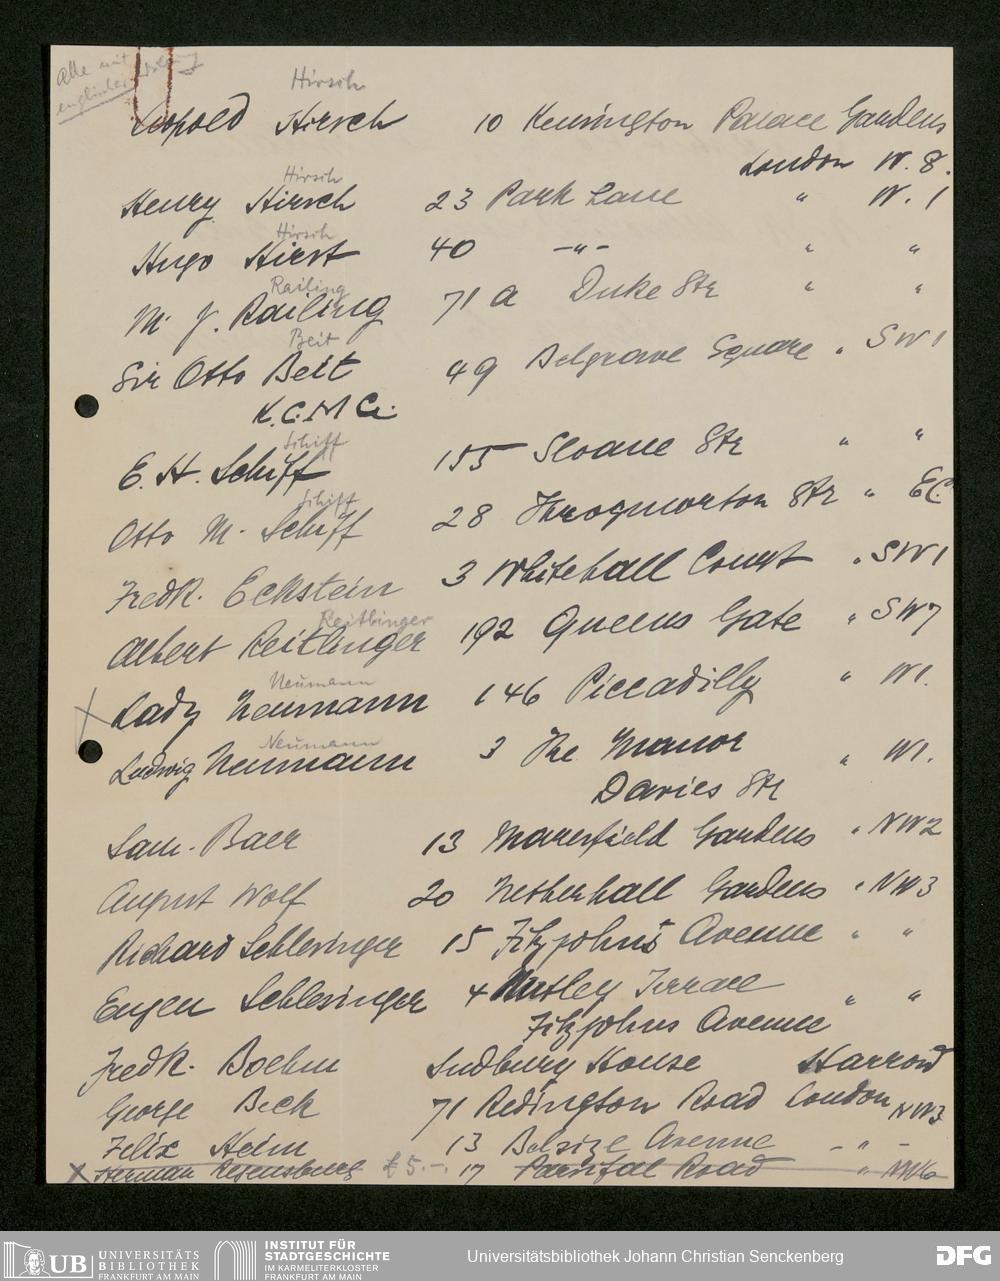 Alle mit
englischer
Hirsch
Leopold Hirsch 10 Kensington Palace Gardens
London W. 8.
Hirsch
Henry Hirsch 23 Park Lane " W. 1
Hirsch
Hugo Hirst 40 -"- " "
Railing
M. J. Railing 71 a Duke Str " "
Beit
Sir Otto Beit 49 Belgrave Square " SW1
K.C.M.G.
Schiff
E. H. Schiff 155 Sloane Str " "
Schiff
Otto M. Schiff 28 Throgmorton Str " EC
Fredk. Eckstein 3 Whitehall Court " SW1
Reitlinger
Albert Reitlinger 192 Queens Gate " SW7
Neumann
Lady Neumann 146 Piccadilly " W1.
Neumann
Ludwig Neumann 3 The Manor " W1.
Davies Str
Sam. Baer 13 Maresfield Gardens " NW2
August Wolf 20 Netherhall Gardens " NW3
Richard Schlesinger 15 Fitzjohns Avenue " "
Eugen Schlesinger 4 Nutley Terrace " "
Fitzjohns Avenue
Fredk. Boehm Sudbury House Harrow
George Beck 71 Redington Road London NW3
Felix Heim 13 Belsize Avenue - " -
Herman Regensburg £ 5.-. 17 Parsifal Road " NW6
UB UNIVERSITÄTS
BIBLIOTHEK
FRANKFURT AM MAIN
INSTITUT FÜR
STADTGESCHICHTE
IM KARMELITERKLOSTER
FRANKFURT AM MAIN
Universitätsbibliothek Johann Christian Senckenberg
DFG